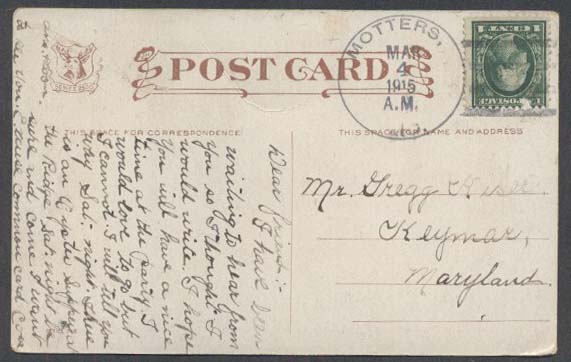 POST CARD
MOTTERS,
MAR
4
1915
A.M.
THIS SPACE FOR CORRESPONDENCE
THIS SPACE FOR NAME AND ADDRESS
Dear friend:-
I have been
waiting to hear from
you so I thought I
would write. I hope
you will have a nice
time at the party I
would love to go but
I cannot. I will tell you
why Sat. night. There
is an Oyster Supper at
the Ridge Sat. night be
sure and come I want
to see you. Excuse common card
Mr. Gregg Kiser.
Keymar,
Maryland.